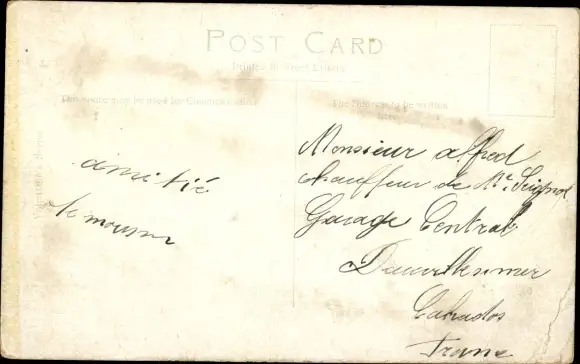 POST CARD
Printed in Great Britain
This space may be used for Communication
The Address to be written
here
amitié
Monsieur Alfred
chauffeur de Mr. Seignol
Garage Central
Calvados
France